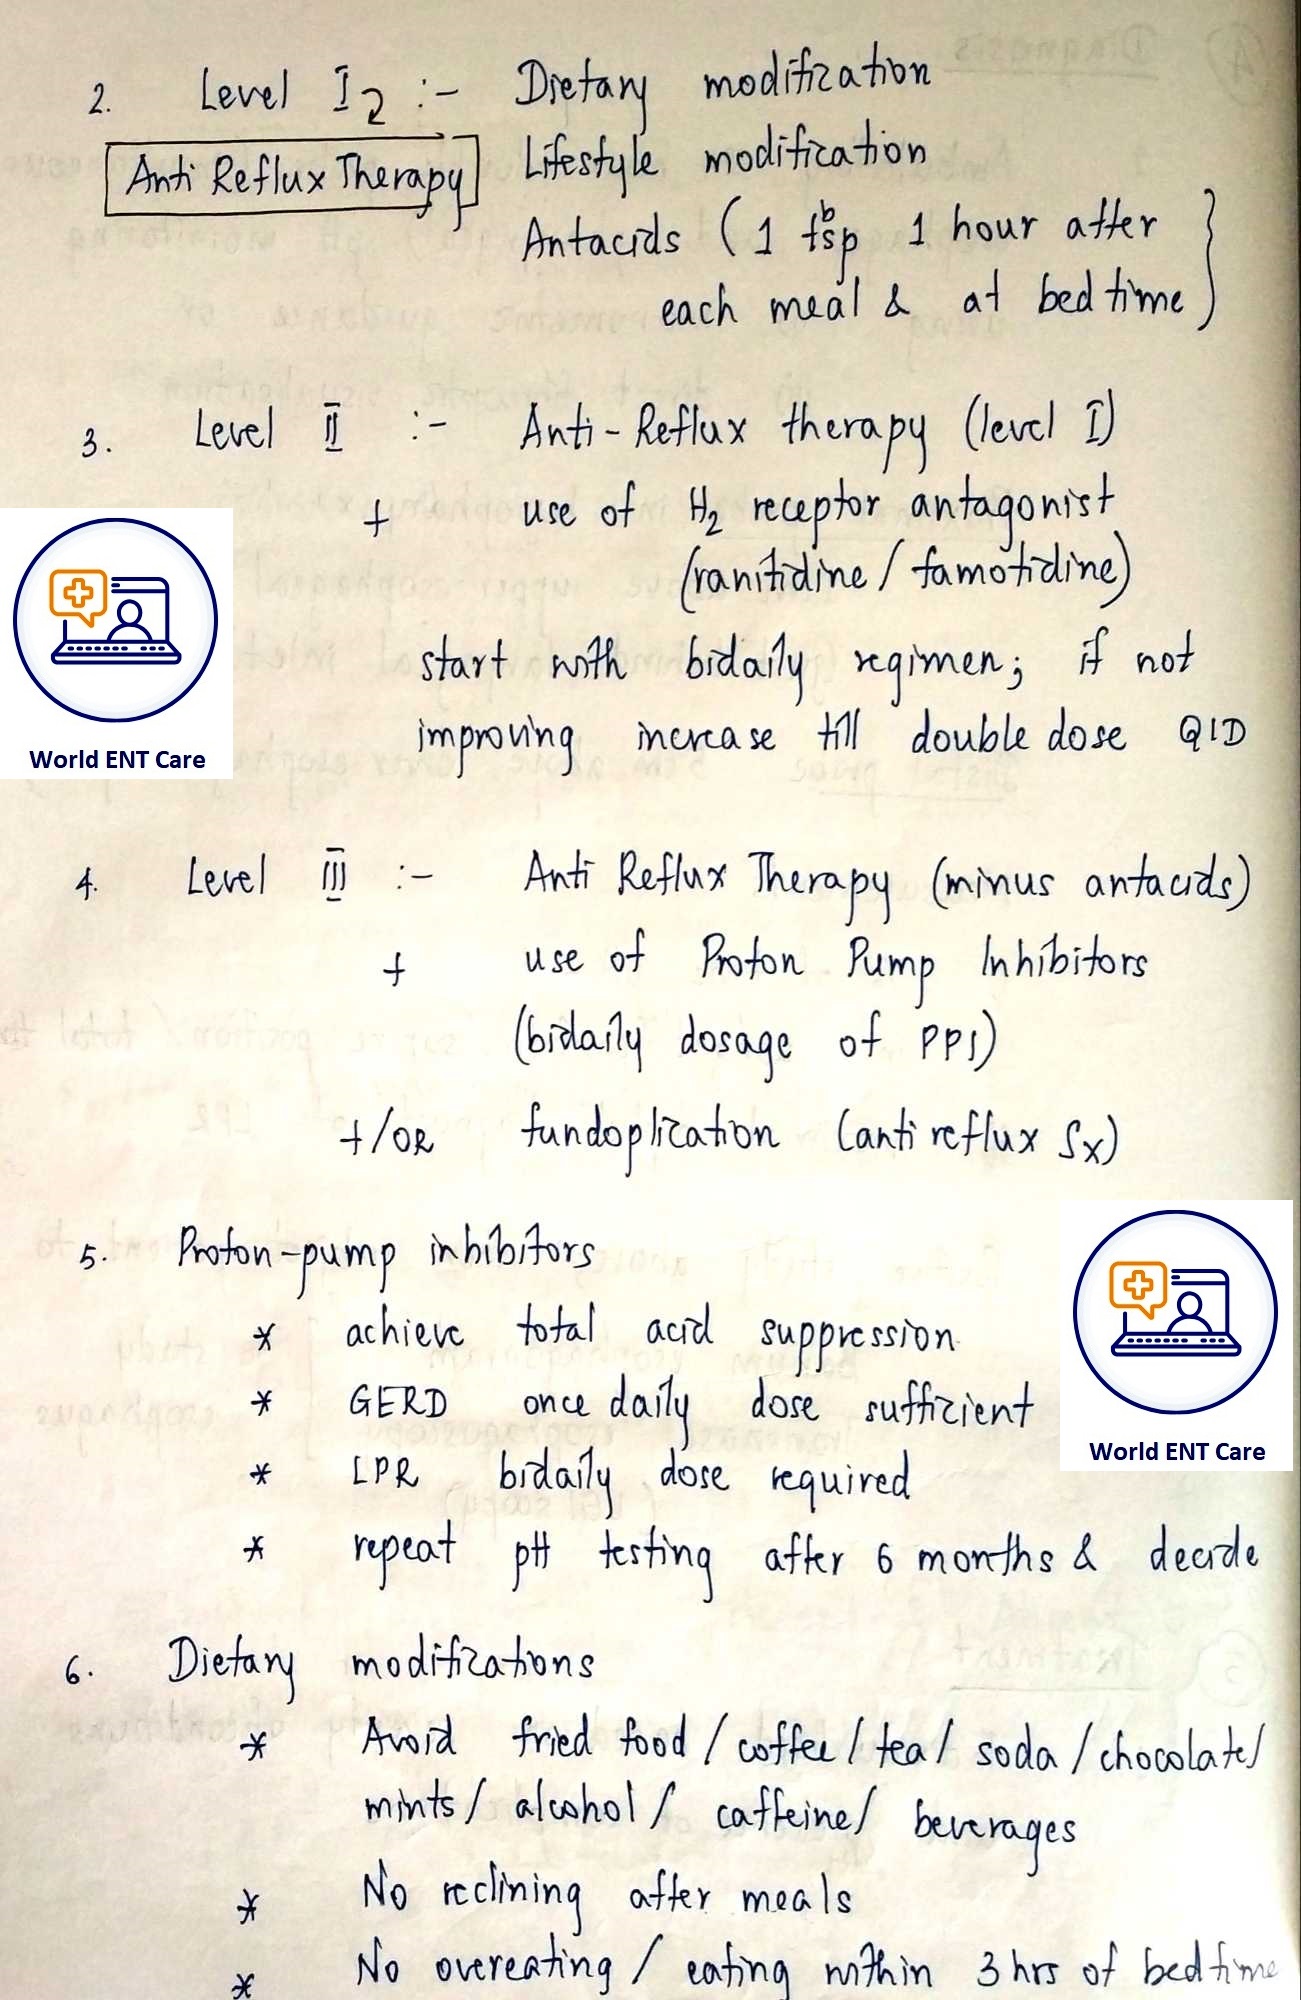 2. Level I :- Dietary modification
Anti Reflux Therapy
Lifestyle modification
Antacids (1 tbsp 1 hour after
each meal & at bed time
3. Level II :- Anti-Reflux therapy (level I)
+ use of H2 receptor antagonist
(ranitidine / famotidine)
start with bidaily regimen; if not
improving increase till double dose QID
World ENT Care
4. Level III :- Anti Reflux Therapy (minus antacids)
+ use of Proton Pump Inhibitors
(bidaily dosage of PPI)
+/OR fundoplication (anti reflux Sx)
5. Proton-pump inhibitors
* achieve total acid suppression
* GERD once daily dose sufficient
* LPR bidaily dose required
World ENT Care
* repeat pH testing after 6 months & decide
6. Dietary modifications
* Avoid fried food / coffee / tea / soda / chocolate/
mints/ alcohol / caffeine/ beverages
* No reclining after meals
* No overeating / eating within 3 hrs of bedtime